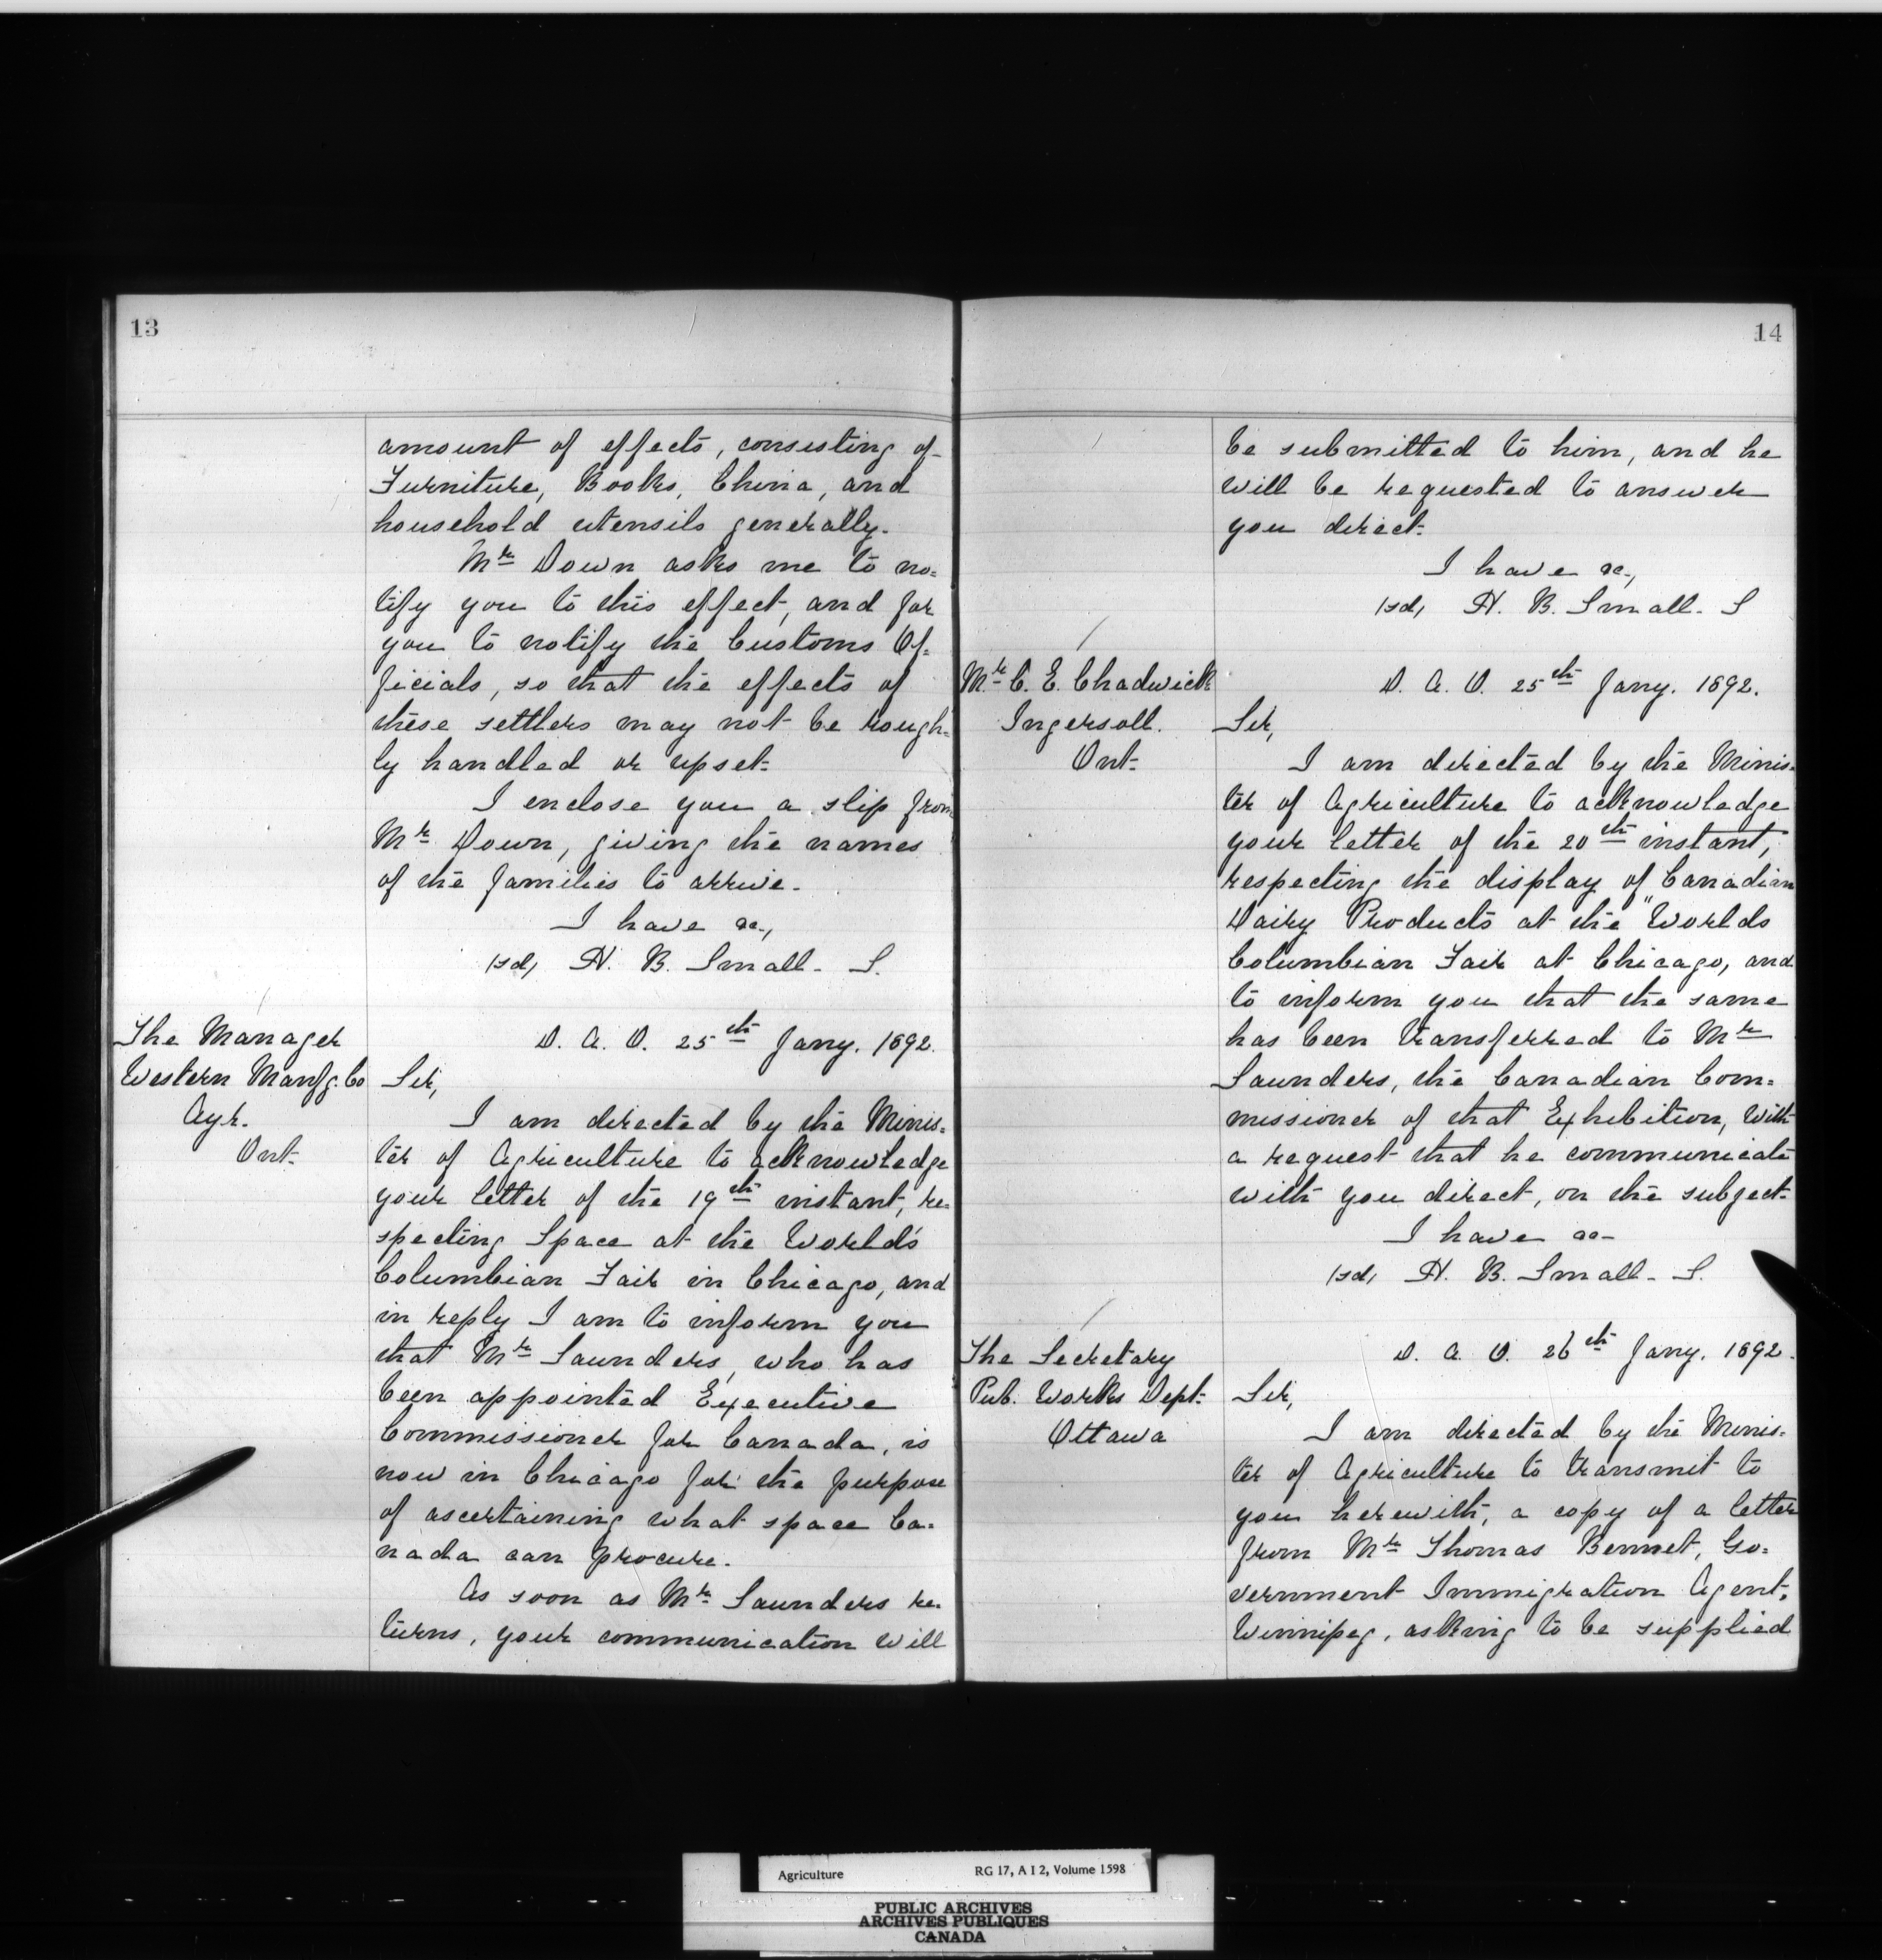 13
amount of effects, consisting of
Furniture, Books, China, and
household utensils generally.
Mr Down asks me to no=
tify you to this effect, and for
you to notify the Customs Of=
ficials, so that the effects of
these settlers may not be rough=
ly handled or upset.
I enclose you a slip from
Mr Down, giving the names
of the families to arrive.
I have &c.,
(sd) H. B. Small. S.
The Manager
Western Manfg. Co
Ayr.
Ont.
D. A. O. 25th Jany. 1892.
Sir,
I am directed by the Minis=
ter of Agriculture to acknowledge
your letter of the 19th instant, re=
specting Space at the World's
Columbian Fair in Chicago, and
in reply I am to inform you
that Mr Saunders, who has
been appointed Executive
Commissioner for Canada, is
now in Chicago for the purpose
of ascertaining what space Ca=
nada can procure.
As soon as Mr. Saunders re=
turns, your communication will
14
be submitted to him, and he
will be requested to answer
you direct.
I have &c.,
(sd) H. B. Small. S
Mr. C. E. Chadwick
Ingersoll.
Ont.
D. A. O. 25th Jany. 1892.
Sir,
I am directed by the Minis=
ter of Agriculture to acknowledge
your letter of the 20th instant,
respecting the display of Canadian
Dairy Products at the "Worlds
Columbian Fair at Chicago, and
to inform you that the same
has been transferred to Mr
Saunders, the Canadian Com=
missioner of that Exhibition, with
a request that he communicate
with you direct, on the subject.
I have &c.
(sd) H. B. Small. S.
The Secretary
Pub. Works Dept.
Ottawa
D. A. O. 26th Jany. 1892.
Sir,
I am directed by the Minis=
ter of Agriculture to transmit to
you herewith, a copy of a letter
from Mr Thomas Bennet, Go=
vernment Immigration Agent,
Winnipeg, asking to be supplied
Agriculture RG 17, A I 2, Volume 1598
PUBLIC ARCHIVES
ARCHIVES PUBLIQUES
CANADA